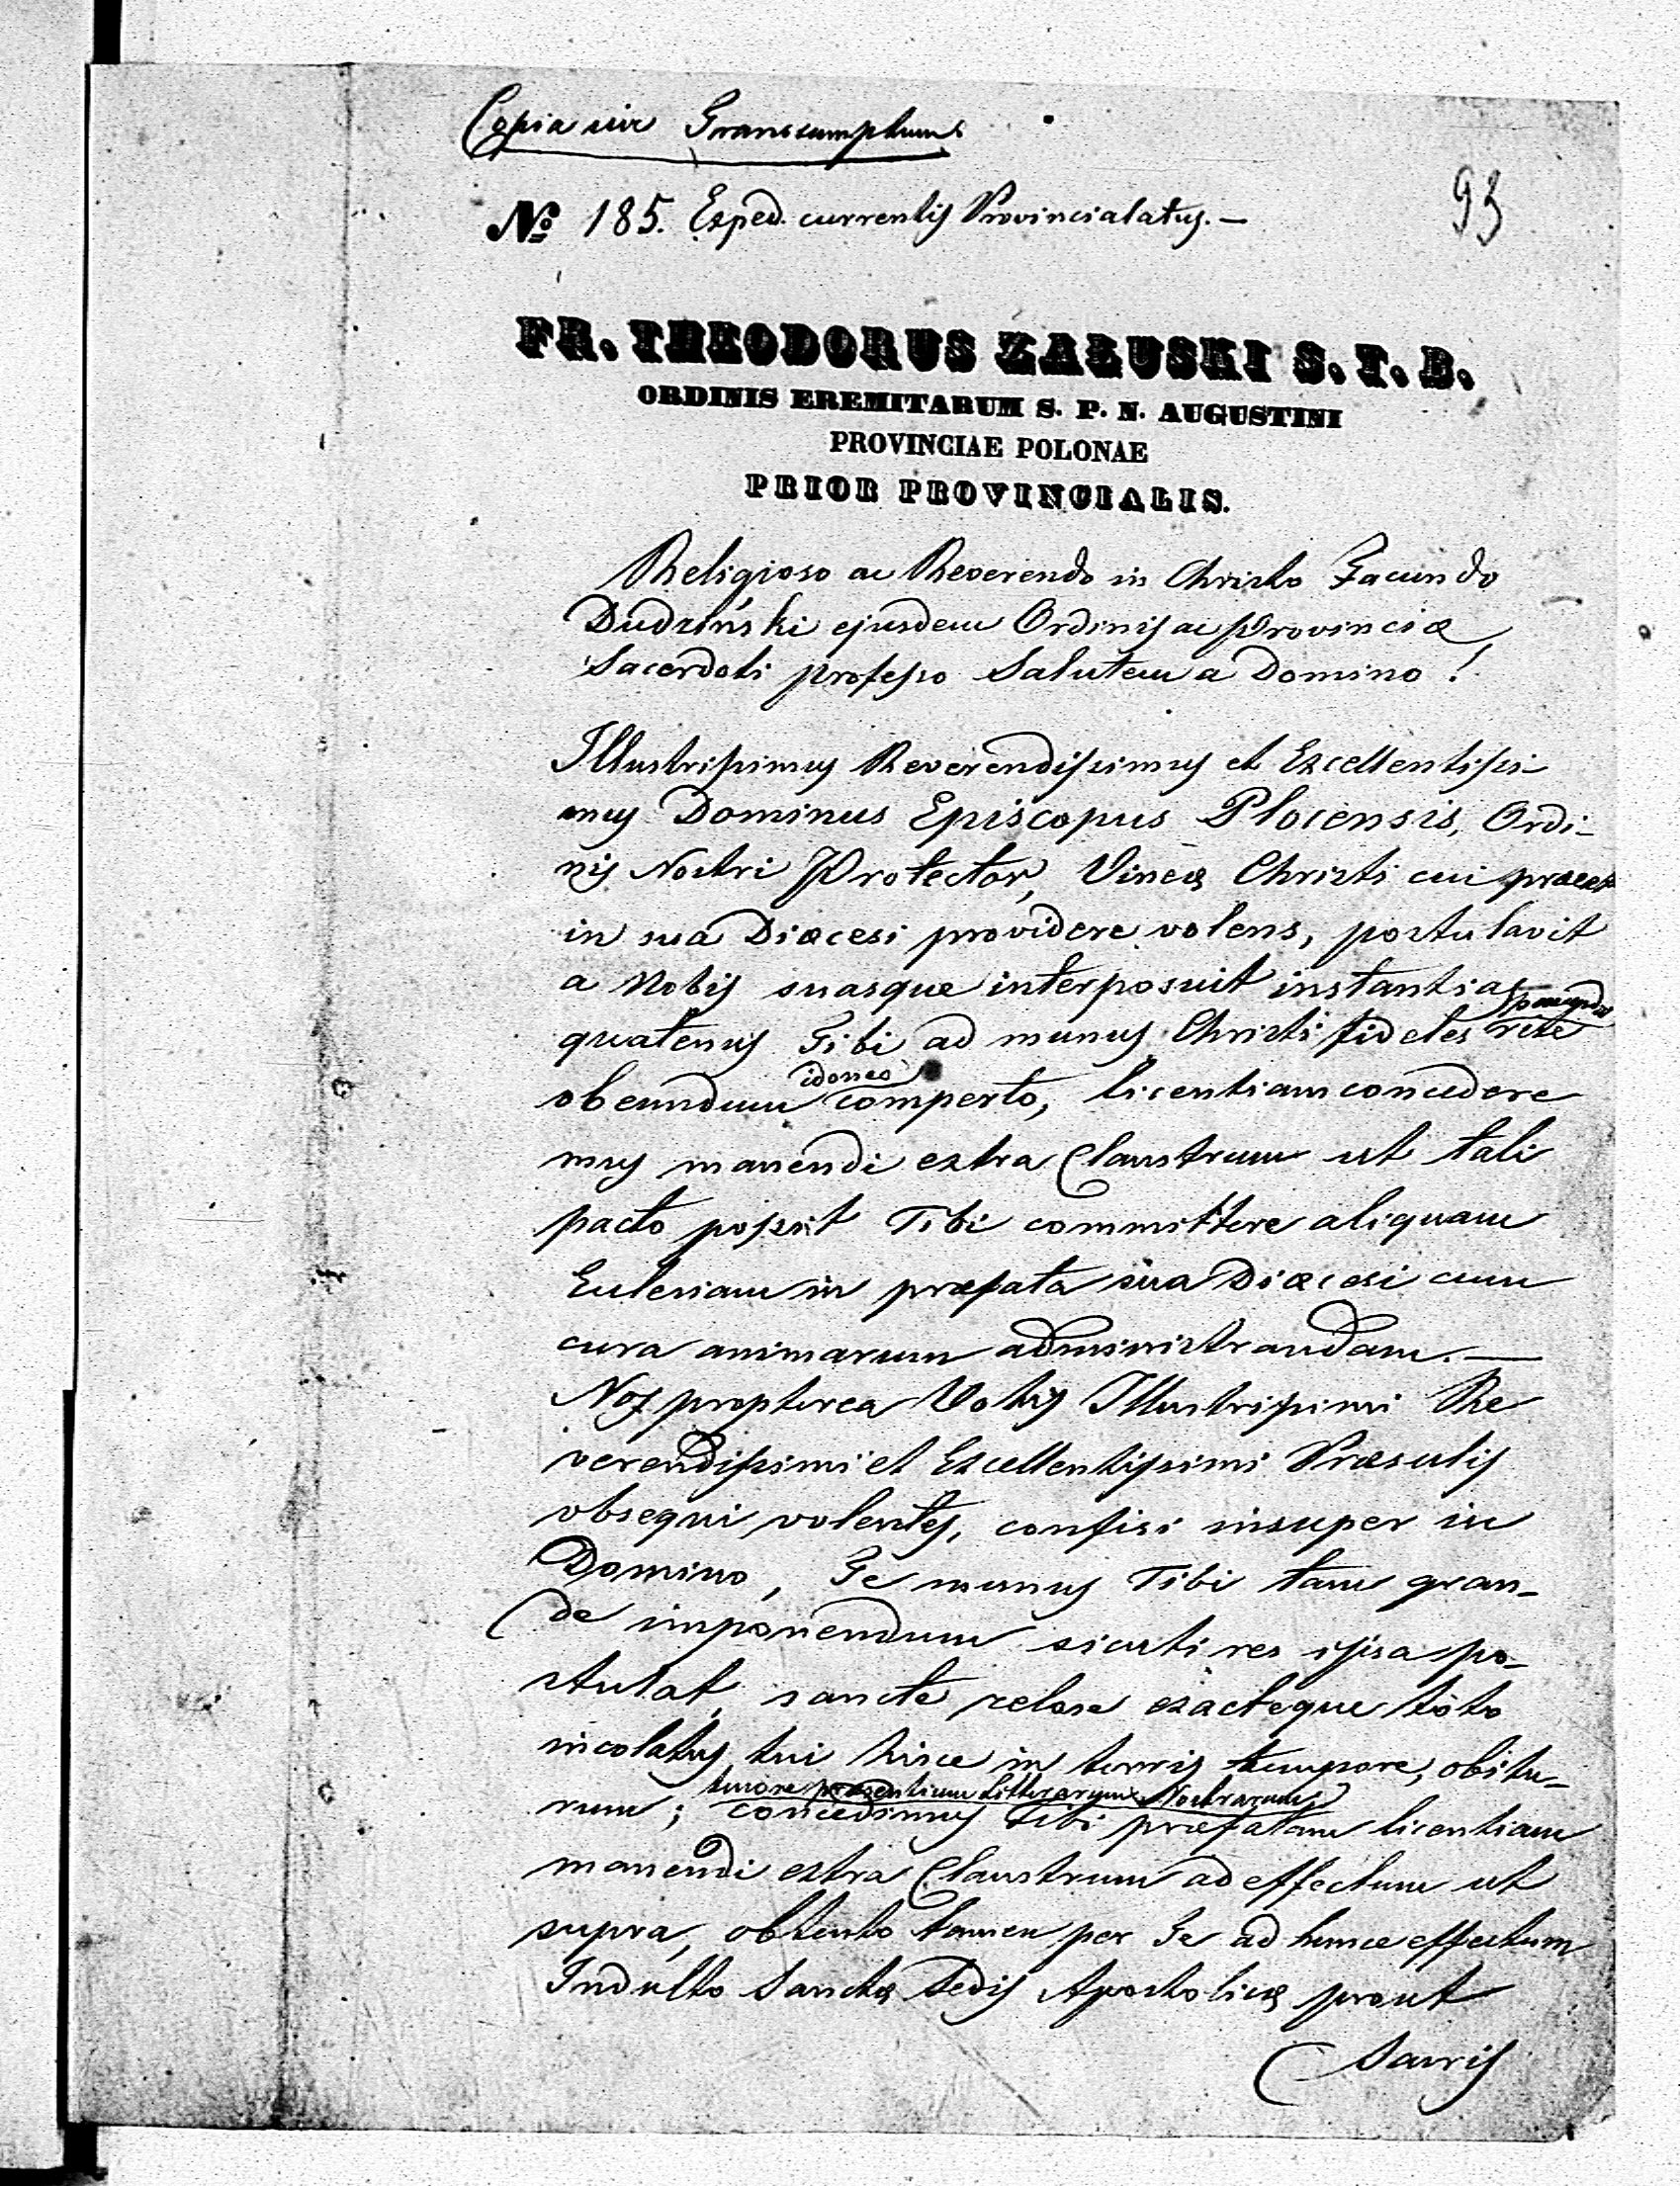 Copia seu Transsumptum
№ 185. Exped. currentis Provincialatus. —
93
FR. THEODORUS ZAŁUSKI S. T. B.
ORDINIS EREMITARUM S. P. N. AUGUSTINI
PROVINCIAE POLONAE
PRIOR PROVINCIALIS.
Religioso ac Reverendo in Christo Facundo
Dudziński ejusdem Ordinis ac Provinciæ
Sacerdoti professo Salutem a Domino!
Illustrissimus Reverendissimus et Excellentissi-
mus Dominus Episcopus Plocensis, Ordi-
nis Nostri Protector, Vineæ Christi cui præest
in sua Diæcesi providere volens, postulavit
a Nobis suasque interposuit instantias
quatenus Tibi ad munus Christi fideles rite
idoneo
obeundum comperto, licentiam concedere
mus manendi extra Claustrum ut tali
pacto possit Tibi committere aliquam
Eclesiam in præfata sua Diæcesi cum
cura animarum administrandam. —
Nos propterea Votis Illustrissimi Re
verendissimi et Excellentissimi Præsulis
obsequi volentes, confisi insuper in
Domino, Te munus Tibi tam gran-
de imponendum sicuti res ipsa po-
stulat, sancte zelose exacteque toto
incolatus tui hisce in terris tempore, obitu-
tenore præsentium Litterarum Nostrarum
rum; concedimus Tibi præfatam licentiam
manendi extra Claustrum ad effectum ut
supra, obtento tamen per Te ad hunce effectum
Indulto Sanctæ Sedis Apostolicæ prout
Sacris